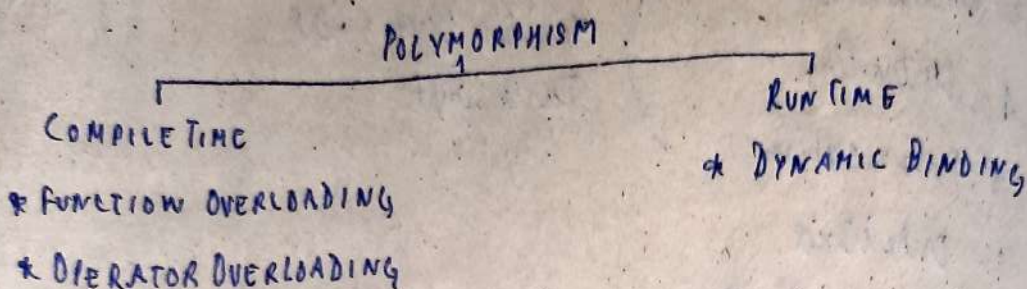 POLYMORPHISM.
COMPILE TIME
* FUNCTION OVERLOADING
* OPERATOR OVERLOADING
RUN TIME
* DYNAMIC BINDING